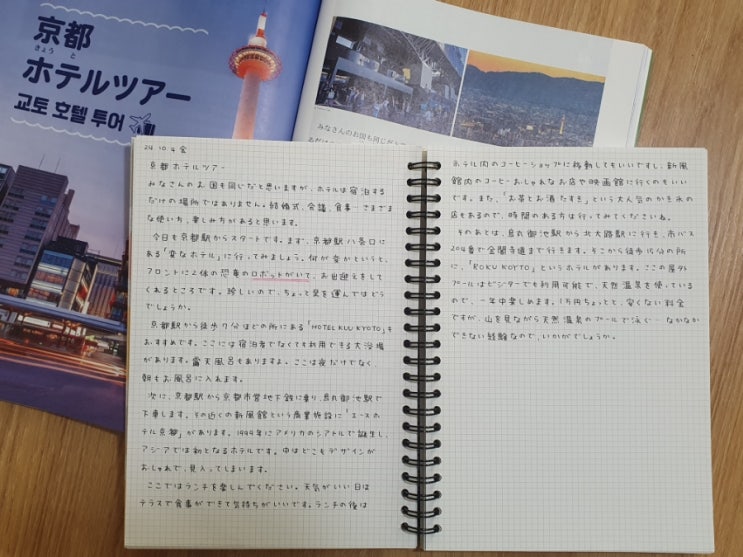 京都
きょうと
ホテルツアー
교토 호텔 투어
みなさんのお国も同じだと
24.10.4 金
京都ホテルツアー
みなさんのお国も同じだと思いますが、ホテルは宿泊する
だけの場所ではありません。結婚式、会議、食事…さまざま
な使い方、楽しみ方があると思います。
今日も京都駅からスタートです。まず、京都駅八条口に
ある「変なホテル」に行ってみましょう。何が変かというと、
フロントに2体の恐竜のロボットがいて、お出迎えをして
くれるところです。珍しいので、ちょっと足を運んではどう
でしょうか。
京都駅から徒歩7分ほどの所にある「HOTEL KUU KYOTO」も
おすすめです。ここには宿泊者でなくても利用できる大浴場
があります。露天風呂もありますよ。ここは夜だけでなく、
朝もお風呂に入れます。
次に、京都駅から京都市営地下鉄に乗り、烏丸御池駅で
下車します。その近くの新風館という商業施設に「エースホ
テル京都」があります。1999年にアメリカのシアトルで誕生し、
アジアでは初となるホテルです。中はどこもデザインが
おしゃれで、見入ってしまいます。
ここではランチを楽しんでください。天気がいい日は
テラスで食事ができて気持ちがいいです。ランチの後は
ホテル内のコーヒーショップに移動してもいいですし、新風
館内のコーヒーおしゃれなお店や映画館に行くのもいい
です。また、「お茶とお酒 たすき」という大人気のかき氷の
店もあるので、時間のある方は行ってみてくださいね。
そのあとは、烏丸御池駅から北大路駅に行き、市バス
204番で金閣寺道まで行きます。そこから徒歩15分の所
に、「ROKU KYOTO」というホテルがあります。ここの屋外
プールはビジターでも利用可能で、天然温泉を使っている
ので、一年中楽しめます。1万円ちょっとと、安くない料金
ですが、山を見ながら天然温泉のプールで泳ぐ…なかなか
できない経験なので、いかがでしょうか。